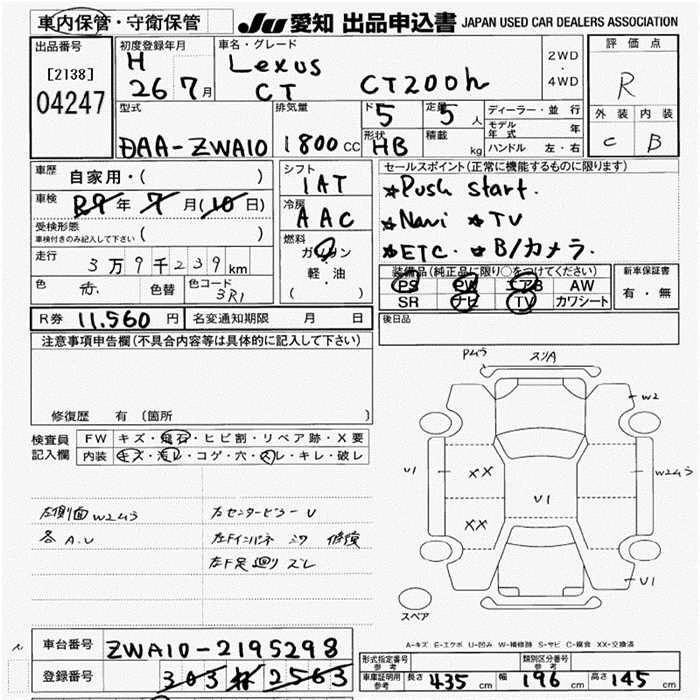 車内保管・守衛保管
JU 愛知 出品申込書 JAPAN USED CAR DEALERS ASSOCIATION
出品番号
[2138]
04247
初度登録年月
H
26 7月
車名・グレード
Lexus
CT CT200h
2WD
・
4WD
評価点
R
外装 内装
C B
型式
DAA-ZWA10
排気量
1800 CC
ド
5
定員
5 人
形状
HB
積載
kg
ディーラー・並行
モデル年式 年
ハンドル 左・右
車歴 自家用・( )
車検 R9年 7月(10日)
受検形態
車検付きのみ記入して下さい ( )
走行 3万9千239km
色 赤. 色替 色コード 3R1
シフト
1AT
冷房
AAC
燃料
ガソリン
軽・油
( )
セールスポイント(正常に機能するものに限ります)
★Push start.
★Navi ★TV
★ETC. ★B/カメラ.
装備品(純正品に限り○をつけてください)
PS PW エアB AW
SR ナビ TV カワシート
新車保証書
有・無
R券 11,560 円 名変通知期限 月 日
後日品
注意事項申告欄(不具合内容等は具体的に記入して下さい)
修復歴 有 (箇所 )
検査員記入欄
FW キズ・飛石・ヒビ割・リペア跡・X要
内装 キズ・汚レ・コゲ・穴・スレ・キレ・破レ
左側面 W2ムラ
各A.U
左F足廻り ズレ
スリA
W2
U1
XX
XX
U1
W2ムラ
U1
スペア
A-キズ E-エクボ U-凹み W-補修跡 S-サビ C-腐食 XX-交換済
車台番号 ZWA10-2195298
登録番号 303 2563
形式指定番号 参考
類別区分番号 参考
車庫証明用 参考 長さ 435 cm 幅 196 cm 高さ 145 cm